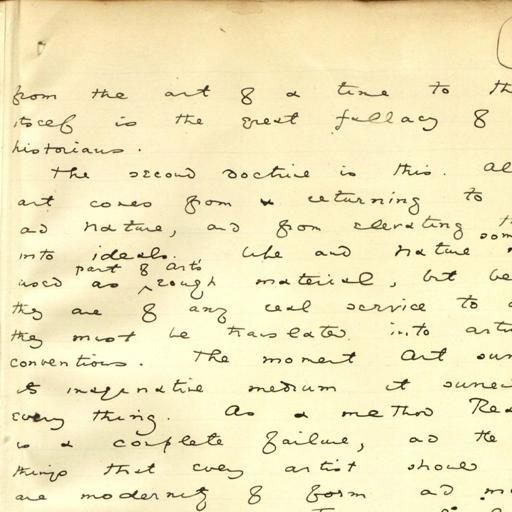 from the art of a time to th
itself is the great fallacy of
historians.
The second doctrine is this. Al
art comes from returning to
and nature, and from elevating th
into ideals. Life and nature som
part of art's
used as rough material, but be
they are of any real service to a
they must be translated into arti
conventions. The moment Art surr
its imaginative medium it surren
every thing. As a method Rea
is a complete failure, and the
things that every artist should
are modernity of form and mo